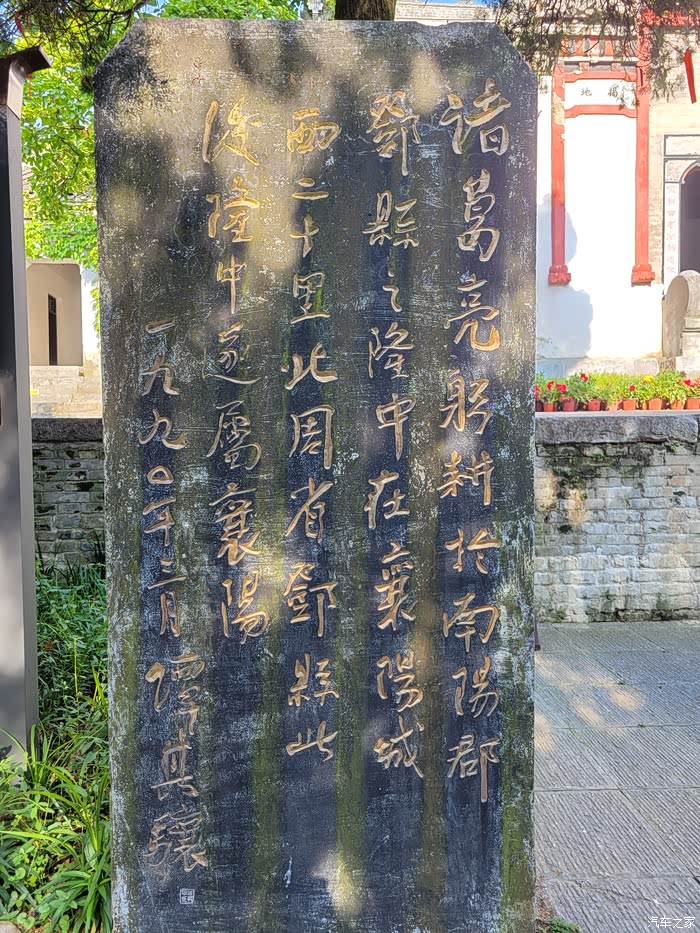 诸葛亮躬耕於南陽郡
鄧縣之隆中在襄陽城
西二十里北周省鄧縣此
後隆中遂屬襄陽
一九九〇年三月 譚其驤
汽车之家